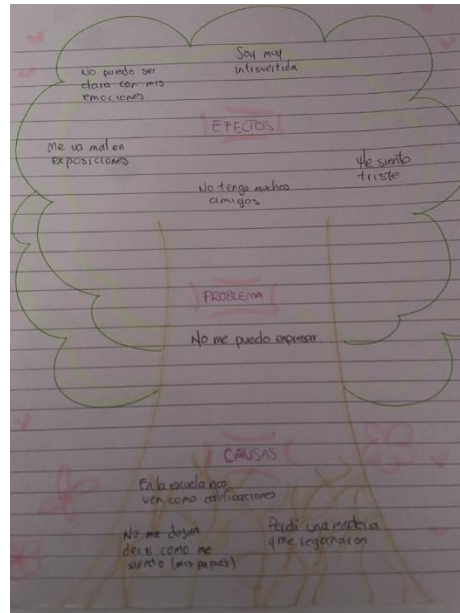 Soy muy
introvertida
No puedo ser
clara con mis
emociones
EFECTOS
Me va mal en
exposiciones
Me siento
triste
No tengo muchos
amigos
PROBLEMA
No me puedo expresar
CAUSAS
En la escuela nos
ven como calificaciones
No me dejan
decir como me
siento (mis papas)
Perdi una materia
y me regañaron